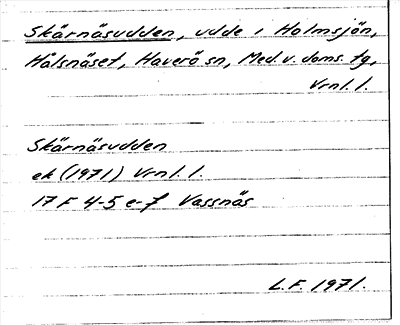 Skärnäsudden, udde i Holmsjön,
Hålsnäset, Haverö sn, Med. v. doms. tg,
Vrnl. l.
Skärnäsudden
ek (1971) Vrnl. l.
17 F 4-5 e-f Vassnäs
L.F. 1971.